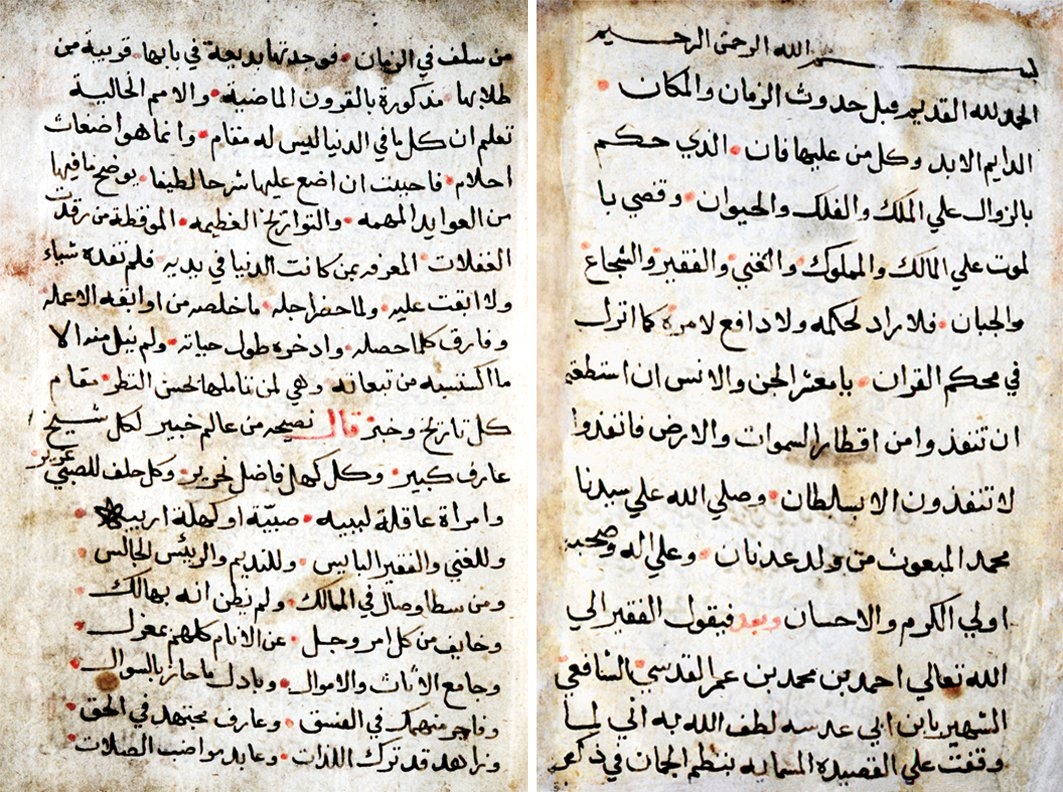 بسم الله الرحمن الرحيم
الحمد لله القديم قبل حدوث الزمان والمكان
الدايم الابد وكل من عليها فان الذي حكم
بالزوال علي الملك والفلك والحيوان وقضي با
لموت علي المالك والمملوك والغني والفقير والشجاع
والجبان فلا راد لحكمه ولا دافع لامره كما انزل
في محكم القران يا معشر الجن والانس ان استطعتم
ان تنفذوا من اقطار السموات والارض فانفذوا
لا تنفذون الا بسلطان وصلي الله علي سيدنا
محمد المبعوث من ولد عدنان وعلي اله وصحبه
اولي الكرم والاحسان وبعد فيقول الفقير الي
الله تعالي احمد بن محمد بن عمر القدسي الشافعي
الشهير بابن ابي عدسه لطف الله به اني لما
وقفت علي القصيدة المسمايه بنظم الجمان في ذكر
من سلف في الزمان فوجدتها بديعة في بابها قريبة من
طلابها مذكورة بالقرون الماضية والامم الخالية
تعلم ان كل ما في الدنيا ليس له مقام وانما هو اضغاث
احلام فاحببت ان اضع عليها شرحا لطيفا يوضح ما فيها
من الفوايد المهمه والتواريخ العظيمه الموقظة من رقدت
الغفلات المعرفه بمن كانت الدنيا في يديه فلم تفده شياء
ولا ابقت عليه ولما حضر اجله ما خلصه من اوابقه الا عمله
وفارق كلما حصله وادخره طول حياته ولم ينل منه الا
ما اكتسبه من تبعاته وهي لمن تاملها لحسن النظر مقام
كل تاريخ وخبر قال نصيحه من عالم خبير لكل شيخ
عارف كبير وكل كهل فاضل نحرير وكل حلف للصبي غرير
وامراة عاقلة لبيبه صبية او كهلة اريبه
وللغني والفقير البايس وللنديم والرئيس الجالس
ومن سطا وصال في الممالك ولم يظن انه بهالك
وخايف من كل امر وجل عن الانام كلهم بمعزل
وجامع الاثاث والاموال وباذل ما حاز بالسوال
وفاجر منهمك في الفسق وعارف مجتهد في الحق
وزاهد قد ترك اللذات وعابد مواضب الصلات